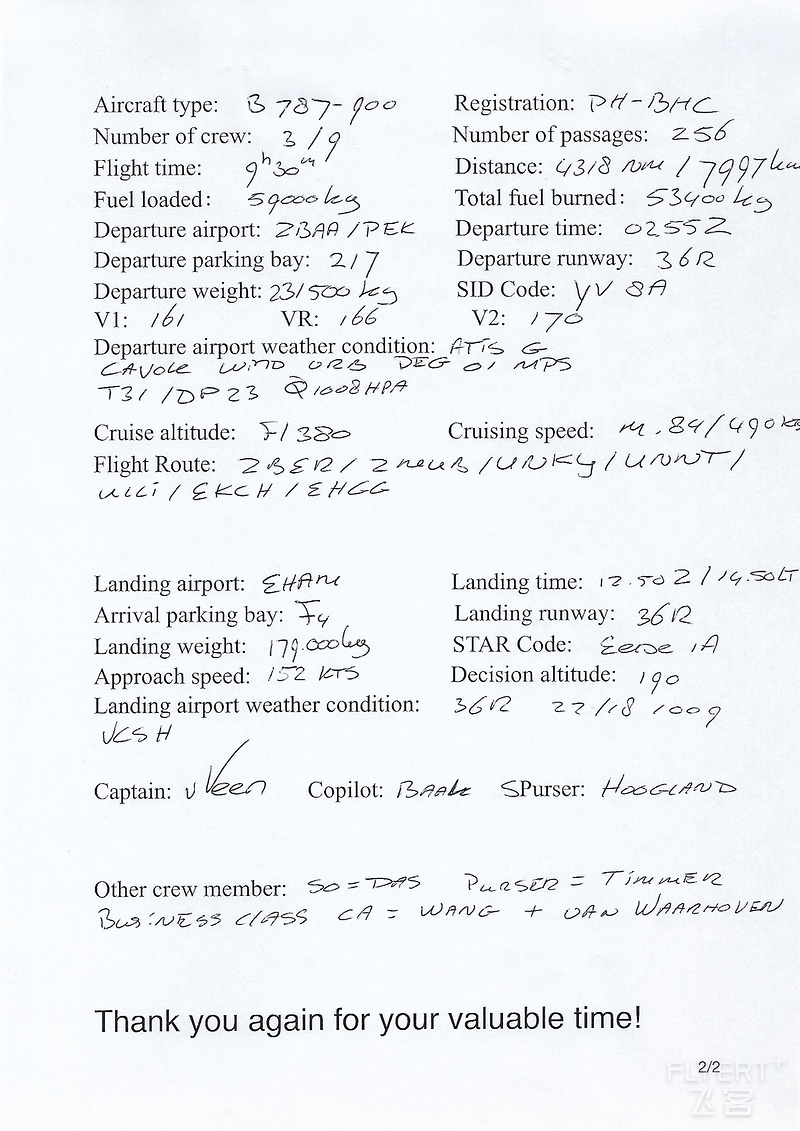 Aircraft type: B 787-900 Registration: PH-BHC
Number of crew: 3/9 Number of passages: 256
Flight time: 9h30m Distance: 4318 nm / 7997km
Fuel loaded: 59000kg Total fuel burned: 53400 kg
Departure airport: ZBAA/PEK Departure time: 0255Z
Departure parking bay: 217 Departure runway: 36R
Departure weight: 231500 kg SID Code: YV 8A
V1: 161 VR: 166 V2: 170
Departure airport weather condition: ATIS G
CAVOK WIND DEG 01 MPS
T31/DP23 Q1008HPA
Cruise altitude: Fl380 Cruising speed: M.84/490
Flight Route: / UNKY / UNNT /
/ EKCH / EHGG
Landing airport: EHAM Landing time: 12.50Z/14.50LT
Arrival parking bay: F4 Landing runway: 36R
Landing weight: 179.000kg STAR Code: 1A
Approach speed: 152 KTS Decision altitude: 190
Landing airport weather condition: 36R 22/18 1009
VCSH
Captain: v Veen Copilot: SPurser: HOOGLAND
Other crew member: SO = DAS PURSER = TIMMER
BUSINESS CLASS CA = WANG + VAN WAARHOVEN
Thank you again for your valuable time!
2/2
FLYERT+
飞客